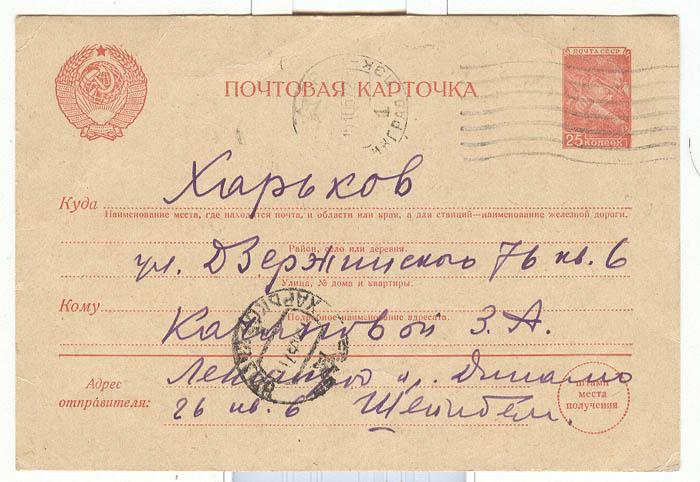 ПОЧТА СССР
ПОЧТОВАЯ КАРТОЧКА
25 КОПЕЕК
Куда Харьков
Наименование места, где находится почта, и области или края, а для станций—наименование железной дороги.
Район, село или деревня.
ул. Дзержинского 76 кв. 6
Улица, № дома и квартиры.
Кому
Подробное наименование адресата.
З. А.
Адрес отправителя:
Динамо
26 кв. 6
Штамп места получения
ХАРЬКОВ